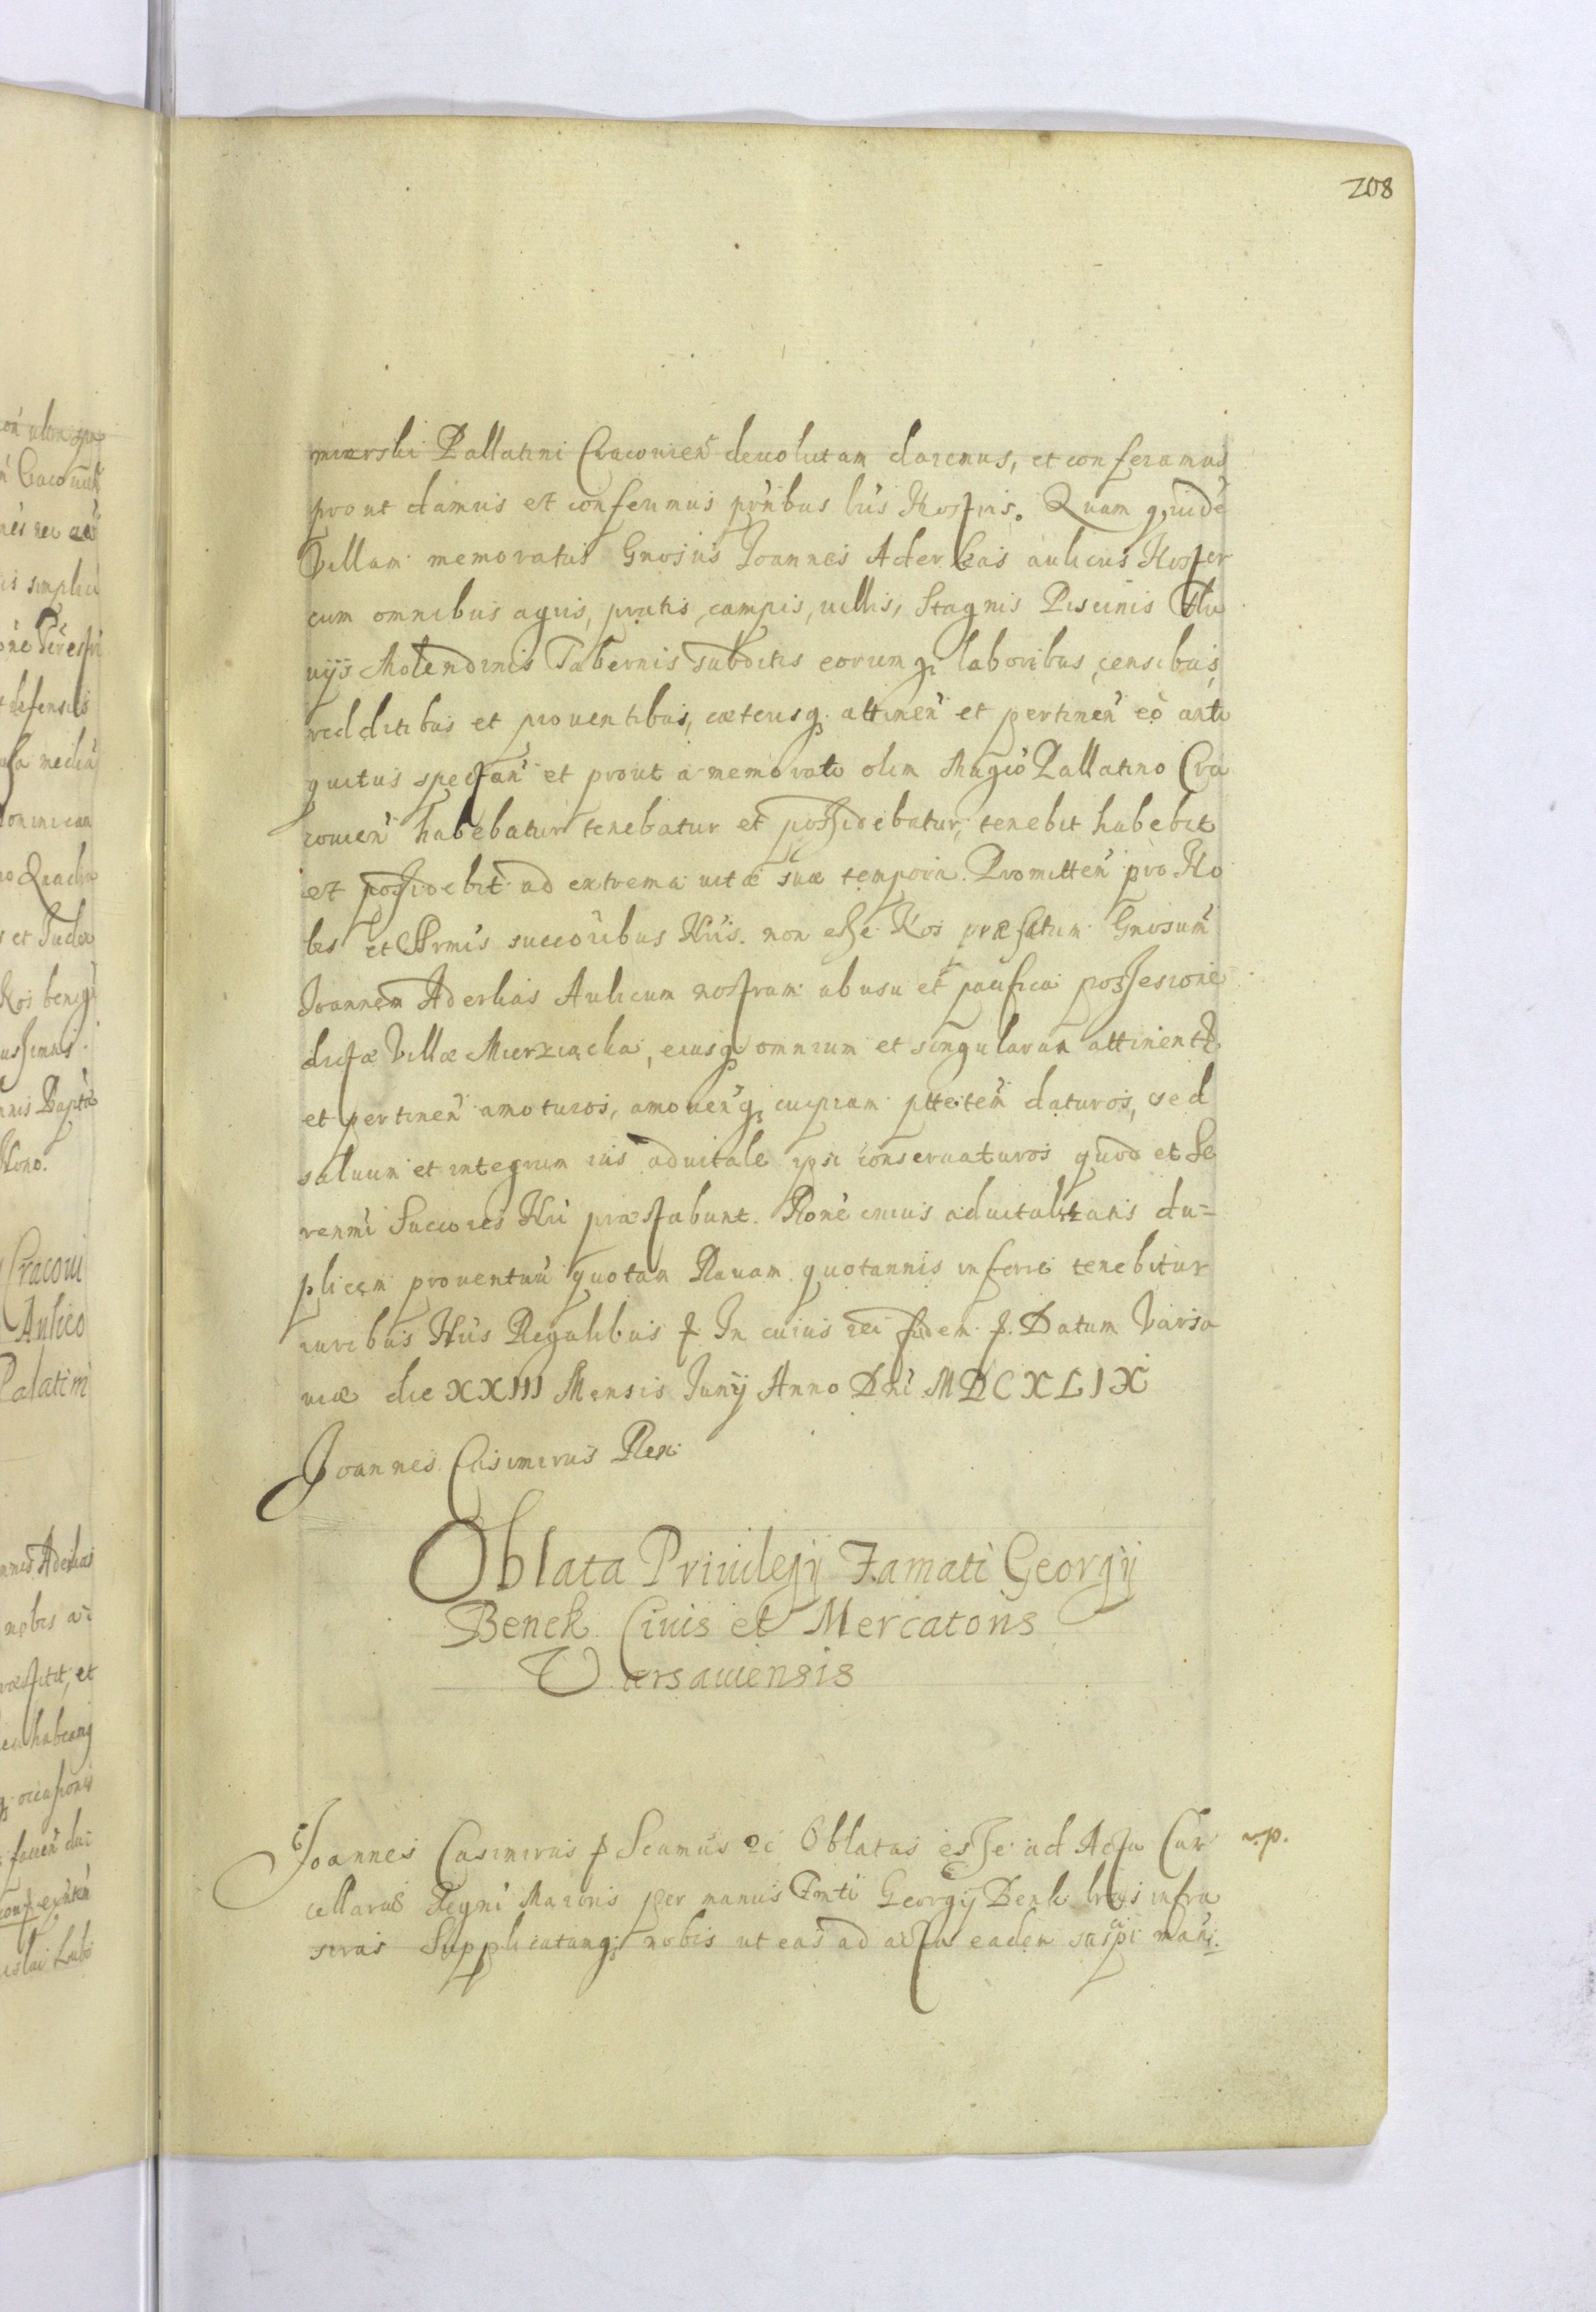 208
mierski Pallatini Cracovien̄ devolutam daremus, et conferamus
prout damus et conferimus pn̄tibus l̄ris Nostris. Quam quidē
Villam memoratus Gn̄osus Joannes Aderkas aulicus Noster
cum omnibus agris, pratis, campis, sylvis, Stagnis Piscinis Flu
vijs Molendinis Tabernis subditis eorumq; laboribus, censibus,
redditibus et proventibus, cæterisq; attinen̄ et pertinen̄ eo anti
quitus spectan̄ et prout a memorato olim Mag̃co Pallatino Cra
covien̄ habebatur tenebatur et possidebatur, tenebit habebit
et possidebit ad extrema vitæ suæ tempora. Promitten̄ pro No
bis et Srm̄is succoribus Nr̄is. non esse Nos præfatum Gn̄osum
Joannem Aderkas Aulicum nostrum ab usu et pacifica possessione
dictæ Villæ Mierziączka, eiusq; omnium et singularum attinenti
et pertinen̄ amoturos, amovendiq; cuipiam ptt̄tem daturos, sed
salvum et integrum ius advitale ipsi conservaturos quod et Se
renmi Succores Nr̄i præstabunt. Rōne cuius advitalitatis du=
plicem proventuū quotam Ravam quotannis inferre tenebitur
iuribus Nr̄is Regalibus p In cuius rei fidem p. Datum Varsa
viæ die XXIII Mensis Junij Anno Dn̄i MDCXLIX
Joannes Casimirus Rex
Oblata Privilegij Famati Georgij
Benek Civis et Mercatoris
Varsaviensis
Joannes Casimirus p Sc̄amus &c Oblatas esse ad Acta Can r.p.
cellariæ Regni Maioris per manus Fm̄ti Georgij Benk l̄ras infra
sc̄ras Supplicatumq; nobis ut eas ad acta eadem suscipi man̄.